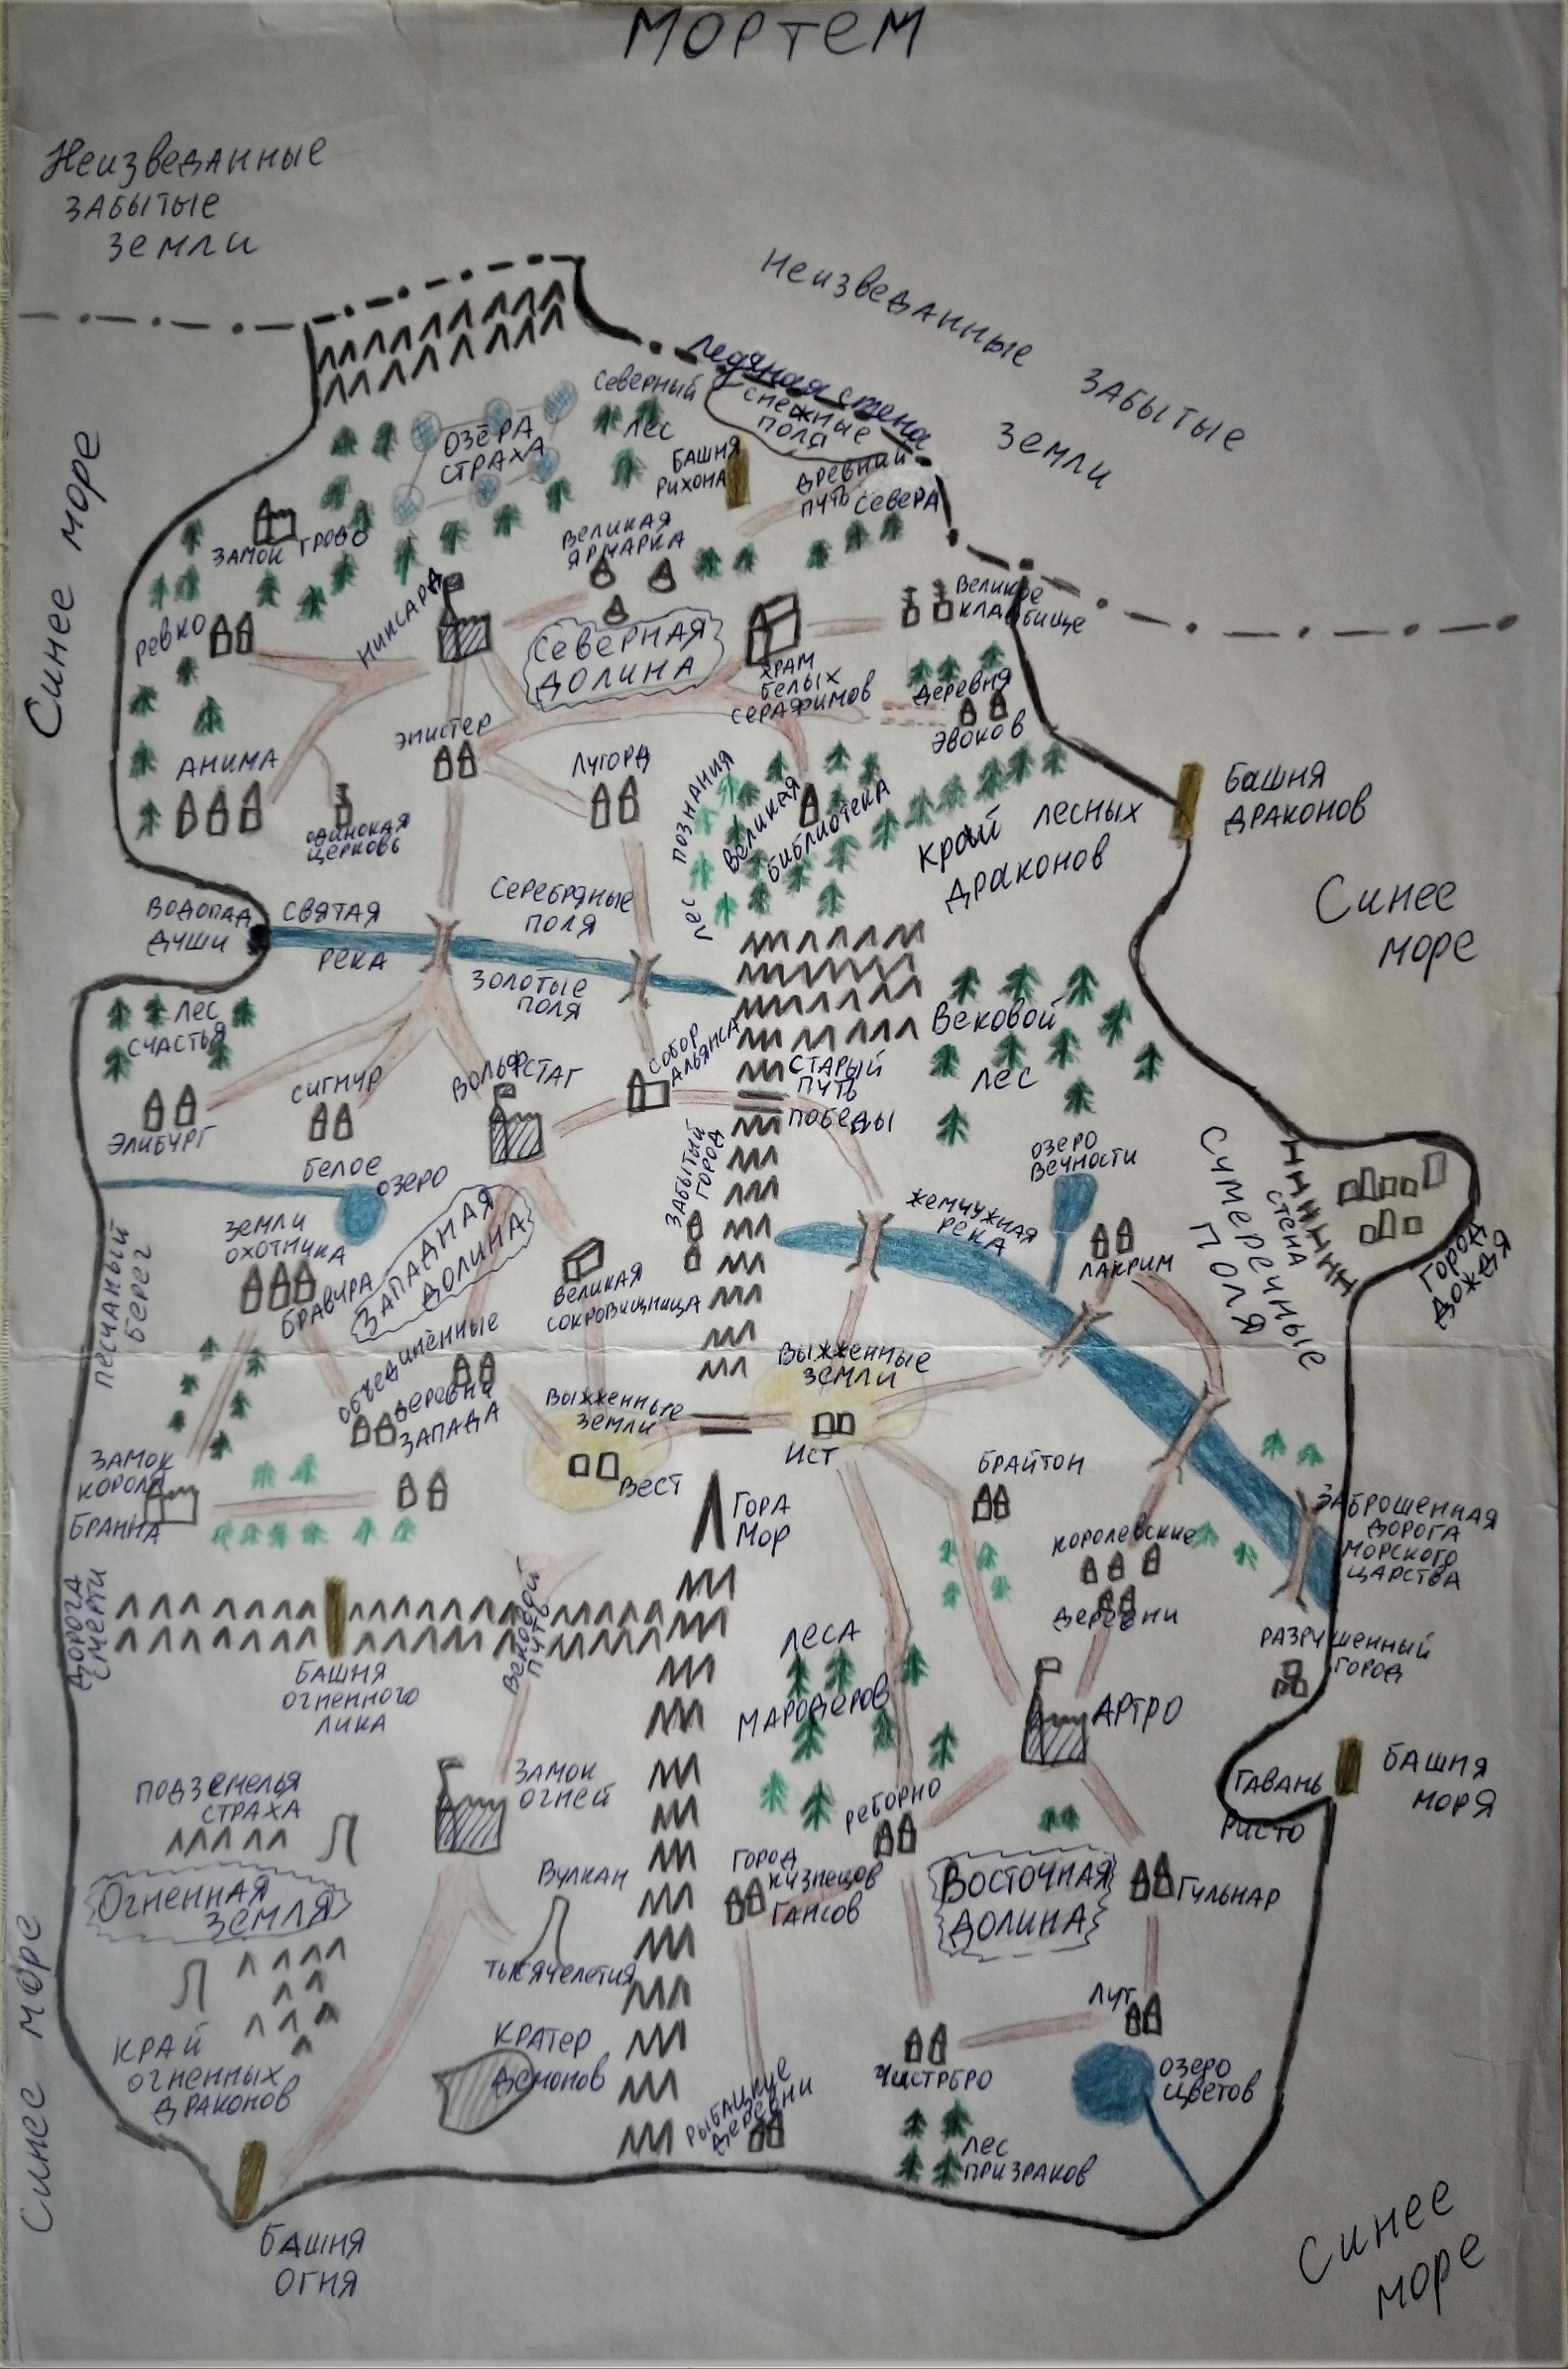 МОРТЕМ
Неизведанные
забытые
земли
Неизведанные
забытые
земли
Ледяная стена
снежные
поля
Северный
лес
Озёра
страха
Башня
Рихона
Древний
путь Севера
Синее море
Замок Грово
Великая
ярмарка
Великое
кладбище
Ревко
Никсард
Северная
долина
Храм
белых
серафимов
Деревня
Эвоков
Эпистер
Анима
Лугорд
Одинокая
церковь
Лес познания
Великая
библиотека
Край лесных
драконов
Башня
драконов
Синее
море
Водопад
души
Святая
река
Серебряные
поля
Золотые
поля
Лес
счастья
Вековой
лес
Собор
Альянса
Старый
путь
победы
Сигнур
Вольфстаг
Элибург
Белое
озеро
Забытый
город
Озеро
вечности
Жемчужная
река
Лакрим
Сумеречные
поля
Стена
Город
дождя
Песчаный
берег
Земли
охотника
Бравура
Западная
долина
Великая
сокровищница
Объединённые
деревни
Запада
Выжженные
земли
Вест
Выжженные
земли
Ист
Замок
короля
Бранна
Гора
Мор
Брайтон
Королевские
деревни
Заброшенная
дорога
морского
царства
Дорога
смерти
Вековой
путь
Башня
огненного
лика
Леса
мародеров
Разрушенный
город
Артро
Подземелья
страха
Замок
огней
Гавань
Ристо
Башня
моря
Реборно
Огненная
земля
Вулкан
тысячелетия
Город
кузнецов
Гансов
Восточная
долина
Гульнар
Лут
Край
огненных
драконов
Кратер
демонов
Рыбацкие
деревни
Чистрбро
Озеро
цветов
Лес
призраков
Синее море
Башня
огня
Синее
море